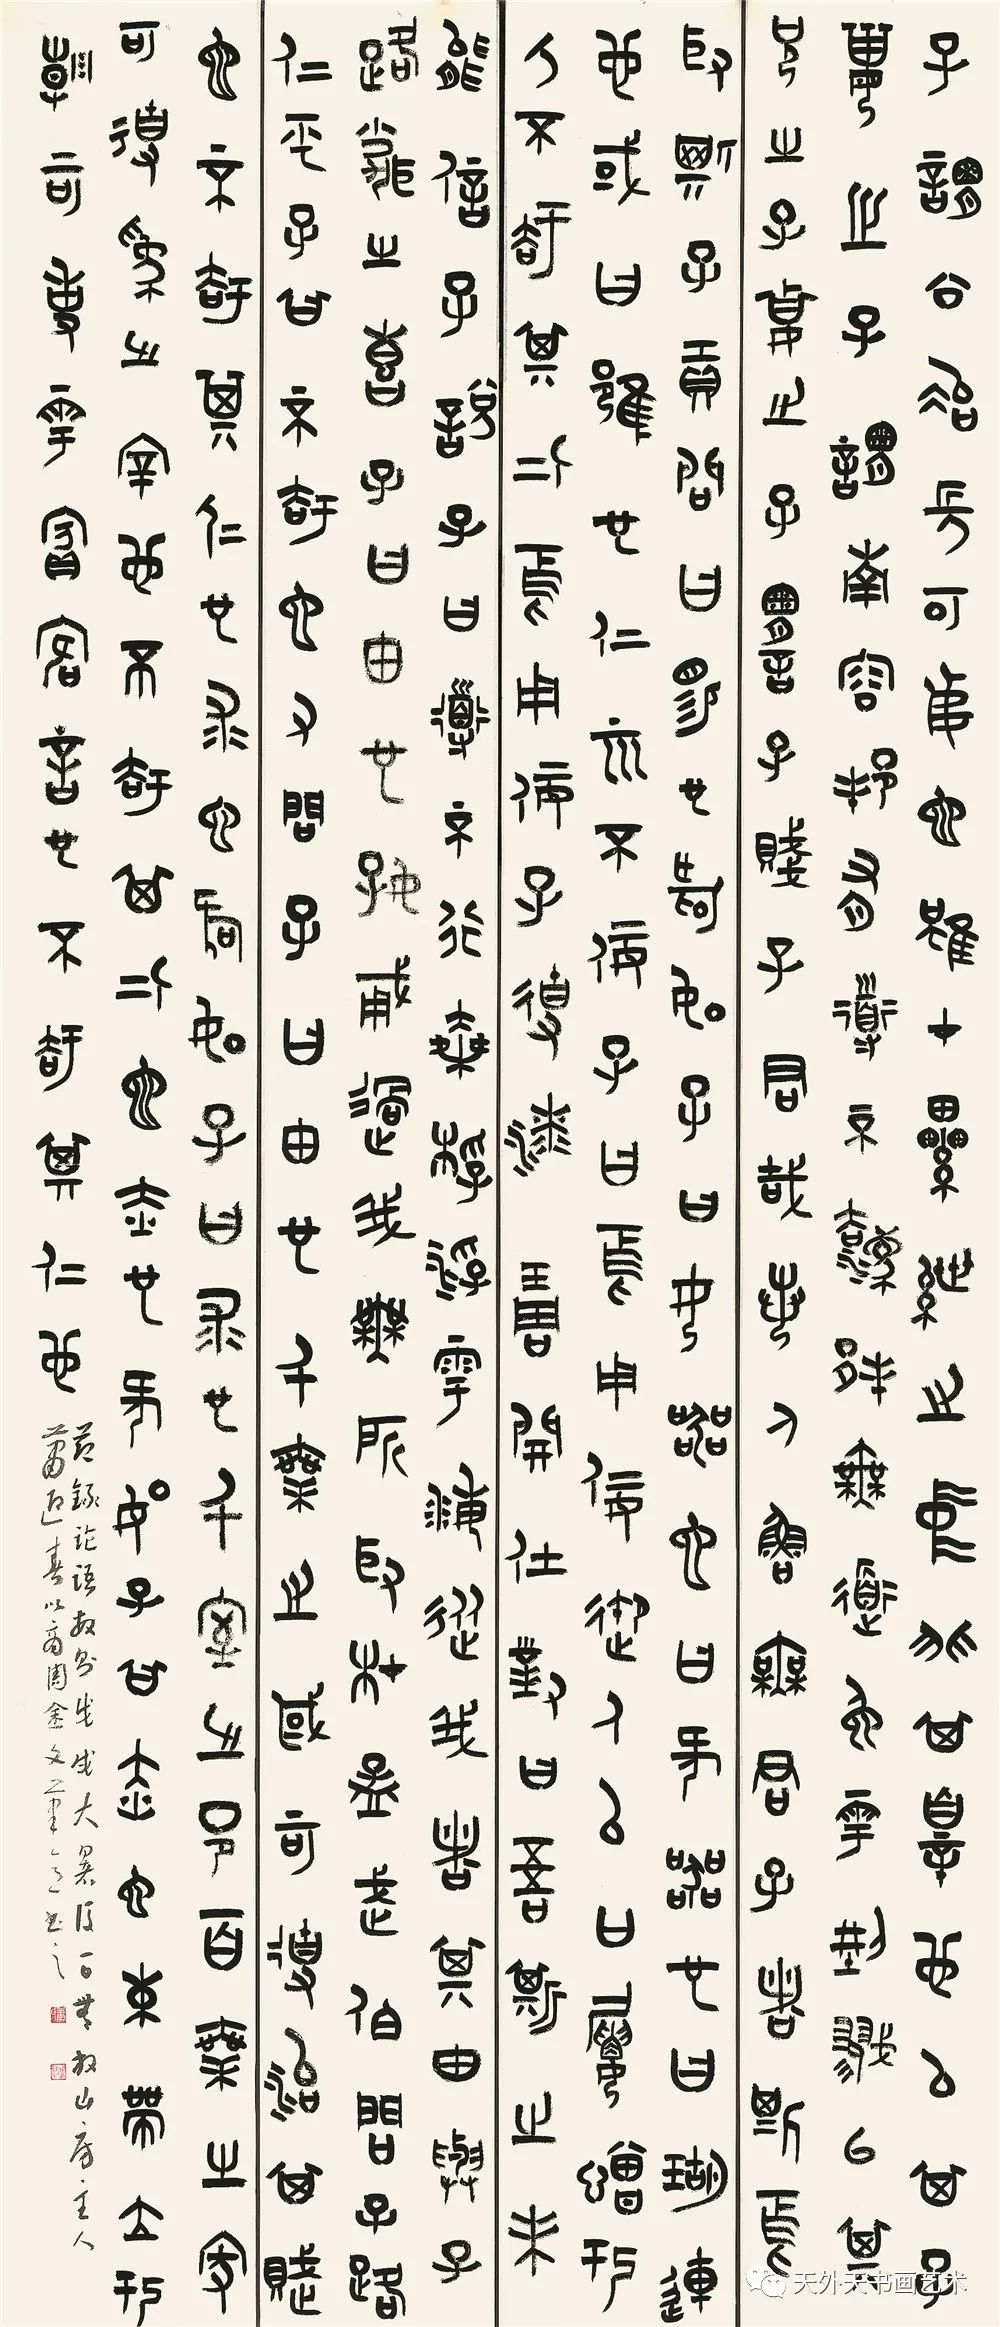 子謂公冶長可妻也雖在縲紲之中非其罪也以其子
妻之子謂南容邦有道不廢邦無道免於刑戮以其
兄之子妻之子謂子賤君子哉若人魯無君子者斯焉
取斯子貢問曰賜也何如子曰女器也曰何器也曰瑚璉
也或曰雍也仁而不佞子曰焉用佞禦人以口給屢憎於
人不知其仁焉用佞子使漆雕開仕對曰吾斯之未
能信子說子曰道不行乘桴浮於海從我者其由與子
路聞之喜子曰由也好勇過我無所取材孟武伯問子路
仁乎子曰不知也又問子曰由也千乘之國可使治其賦
也不知其仁也求也何如子曰求也千室之邑百乘之家
可使為之宰也不知其仁也赤也何如子曰赤也束帶立於
朝可使與賓客言也不知其仁也
節錄論語數則戊戌大暑後一日 山房主人
以商周金文筆意書之
天外天书画艺术